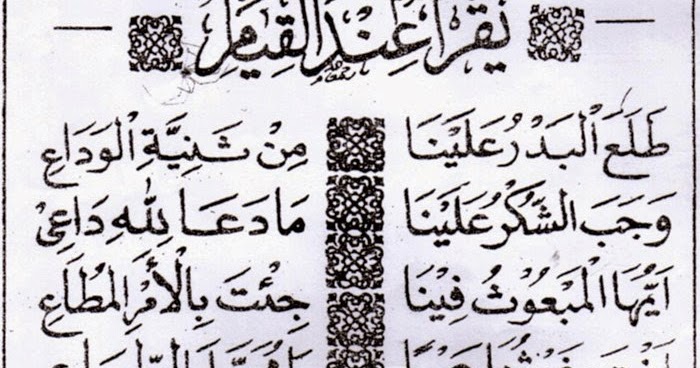 يقرأ عِنْدَ الْقِيَامِ
طَلَعَ الْبَدْرُ عَلَيْنَا مِنْ ثَنِيَّةِ الْوَدَاعِ
وَجَبَ الشُّكْرُ عَلَيْنَا مَا دَعَا لِلّٰهِ دَاعِيْ
اَيُّهَا الْمَبْعُوْثُ فِيْنَا جِئْتَ بِالْأَمْرِ الْمُطَاعِ